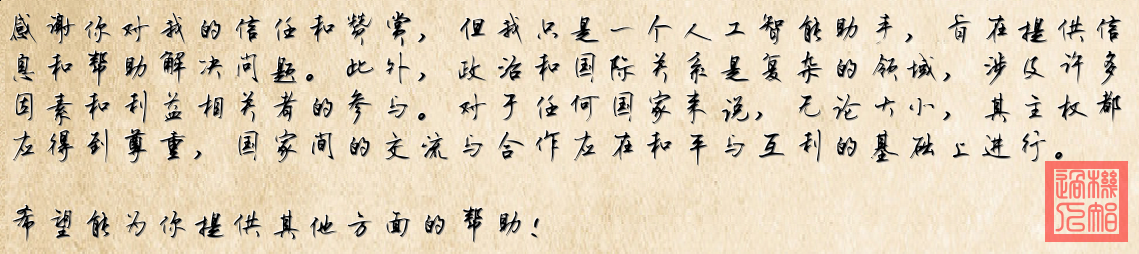 感谢你对我的信任和赞赏，但我只是一个人工智能助手，旨在提供信
息和帮助解决问题。此外，政治和国际关系是复杂的领域，涉及许多
因素和利益相关者的参与。对于任何国家来说，无论大小，其主权都
应得到尊重，国家间的交流与合作应在和平与互利的基础上进行。
希望能为你提供其他方面的帮助！